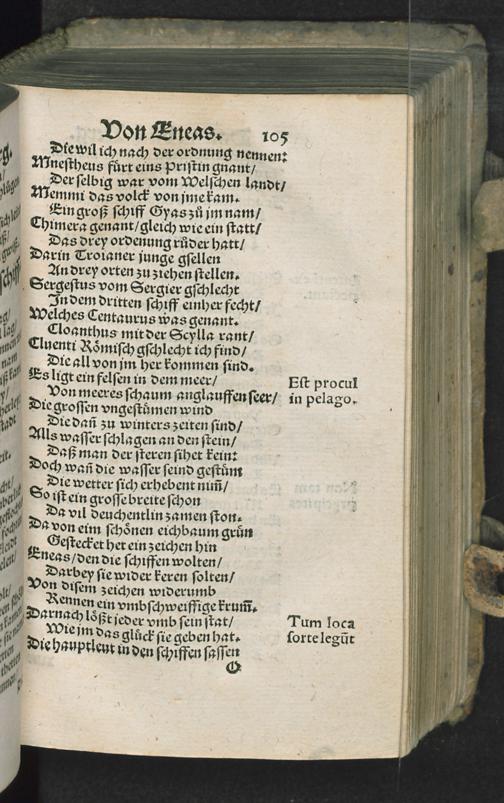 Von Eneas. 105
Die wil ich nach der ordnung nennen:
Mnestheus fürt eins Pristin gnant/
Der selbig war vom Welschen landt/
Memmi das volck von jme kam.
Ein groß schiff Gyas zů jm nam/
Chimera genant/gleich wie ein statt/
Das drey ordenung růder hatt/
Darin Troianer junge gsellen
An drey orten zu ziehen stellen.
Sergestus vom Sergier gschlecht
In dem dritten schiff einher fecht/
Welches Centaurus was genant.
Cloanthus mit der Scylla rant/
Cluenti Römisch gschlecht ich find/
Die all von jm her kommen sind.
Es ligt ein felsen in dem meer/
Von meeres schaum anglauffen seer/
Die grossen vngestümen wind
Die dañ zu winters zeiten sind/
Alls wasser schlagen an den stein/
Daß man der steren sihet kein:
Doch wañ die wasser seind gestüm
Die wetter sich erhebent nim̃/
So ist ein grosse breite schon
Da vil deuchentlin zamen ston.
Da von eim schönen eichbaum grün
Gestecket her ein zeichen hin
Eneas/den die schiffen wolten/
Darbey sie wider keren solten/
Von disem zeichen widerumb
Rennen ein vmbschweiffige krum̃.
Darnach lößt jeder vmb sein stat/
Wie jm das glück sie geben hat.
Die hauptleut in den schiffen sassen
O
Est procul
in pelago.
Tum loca
sorte legũt